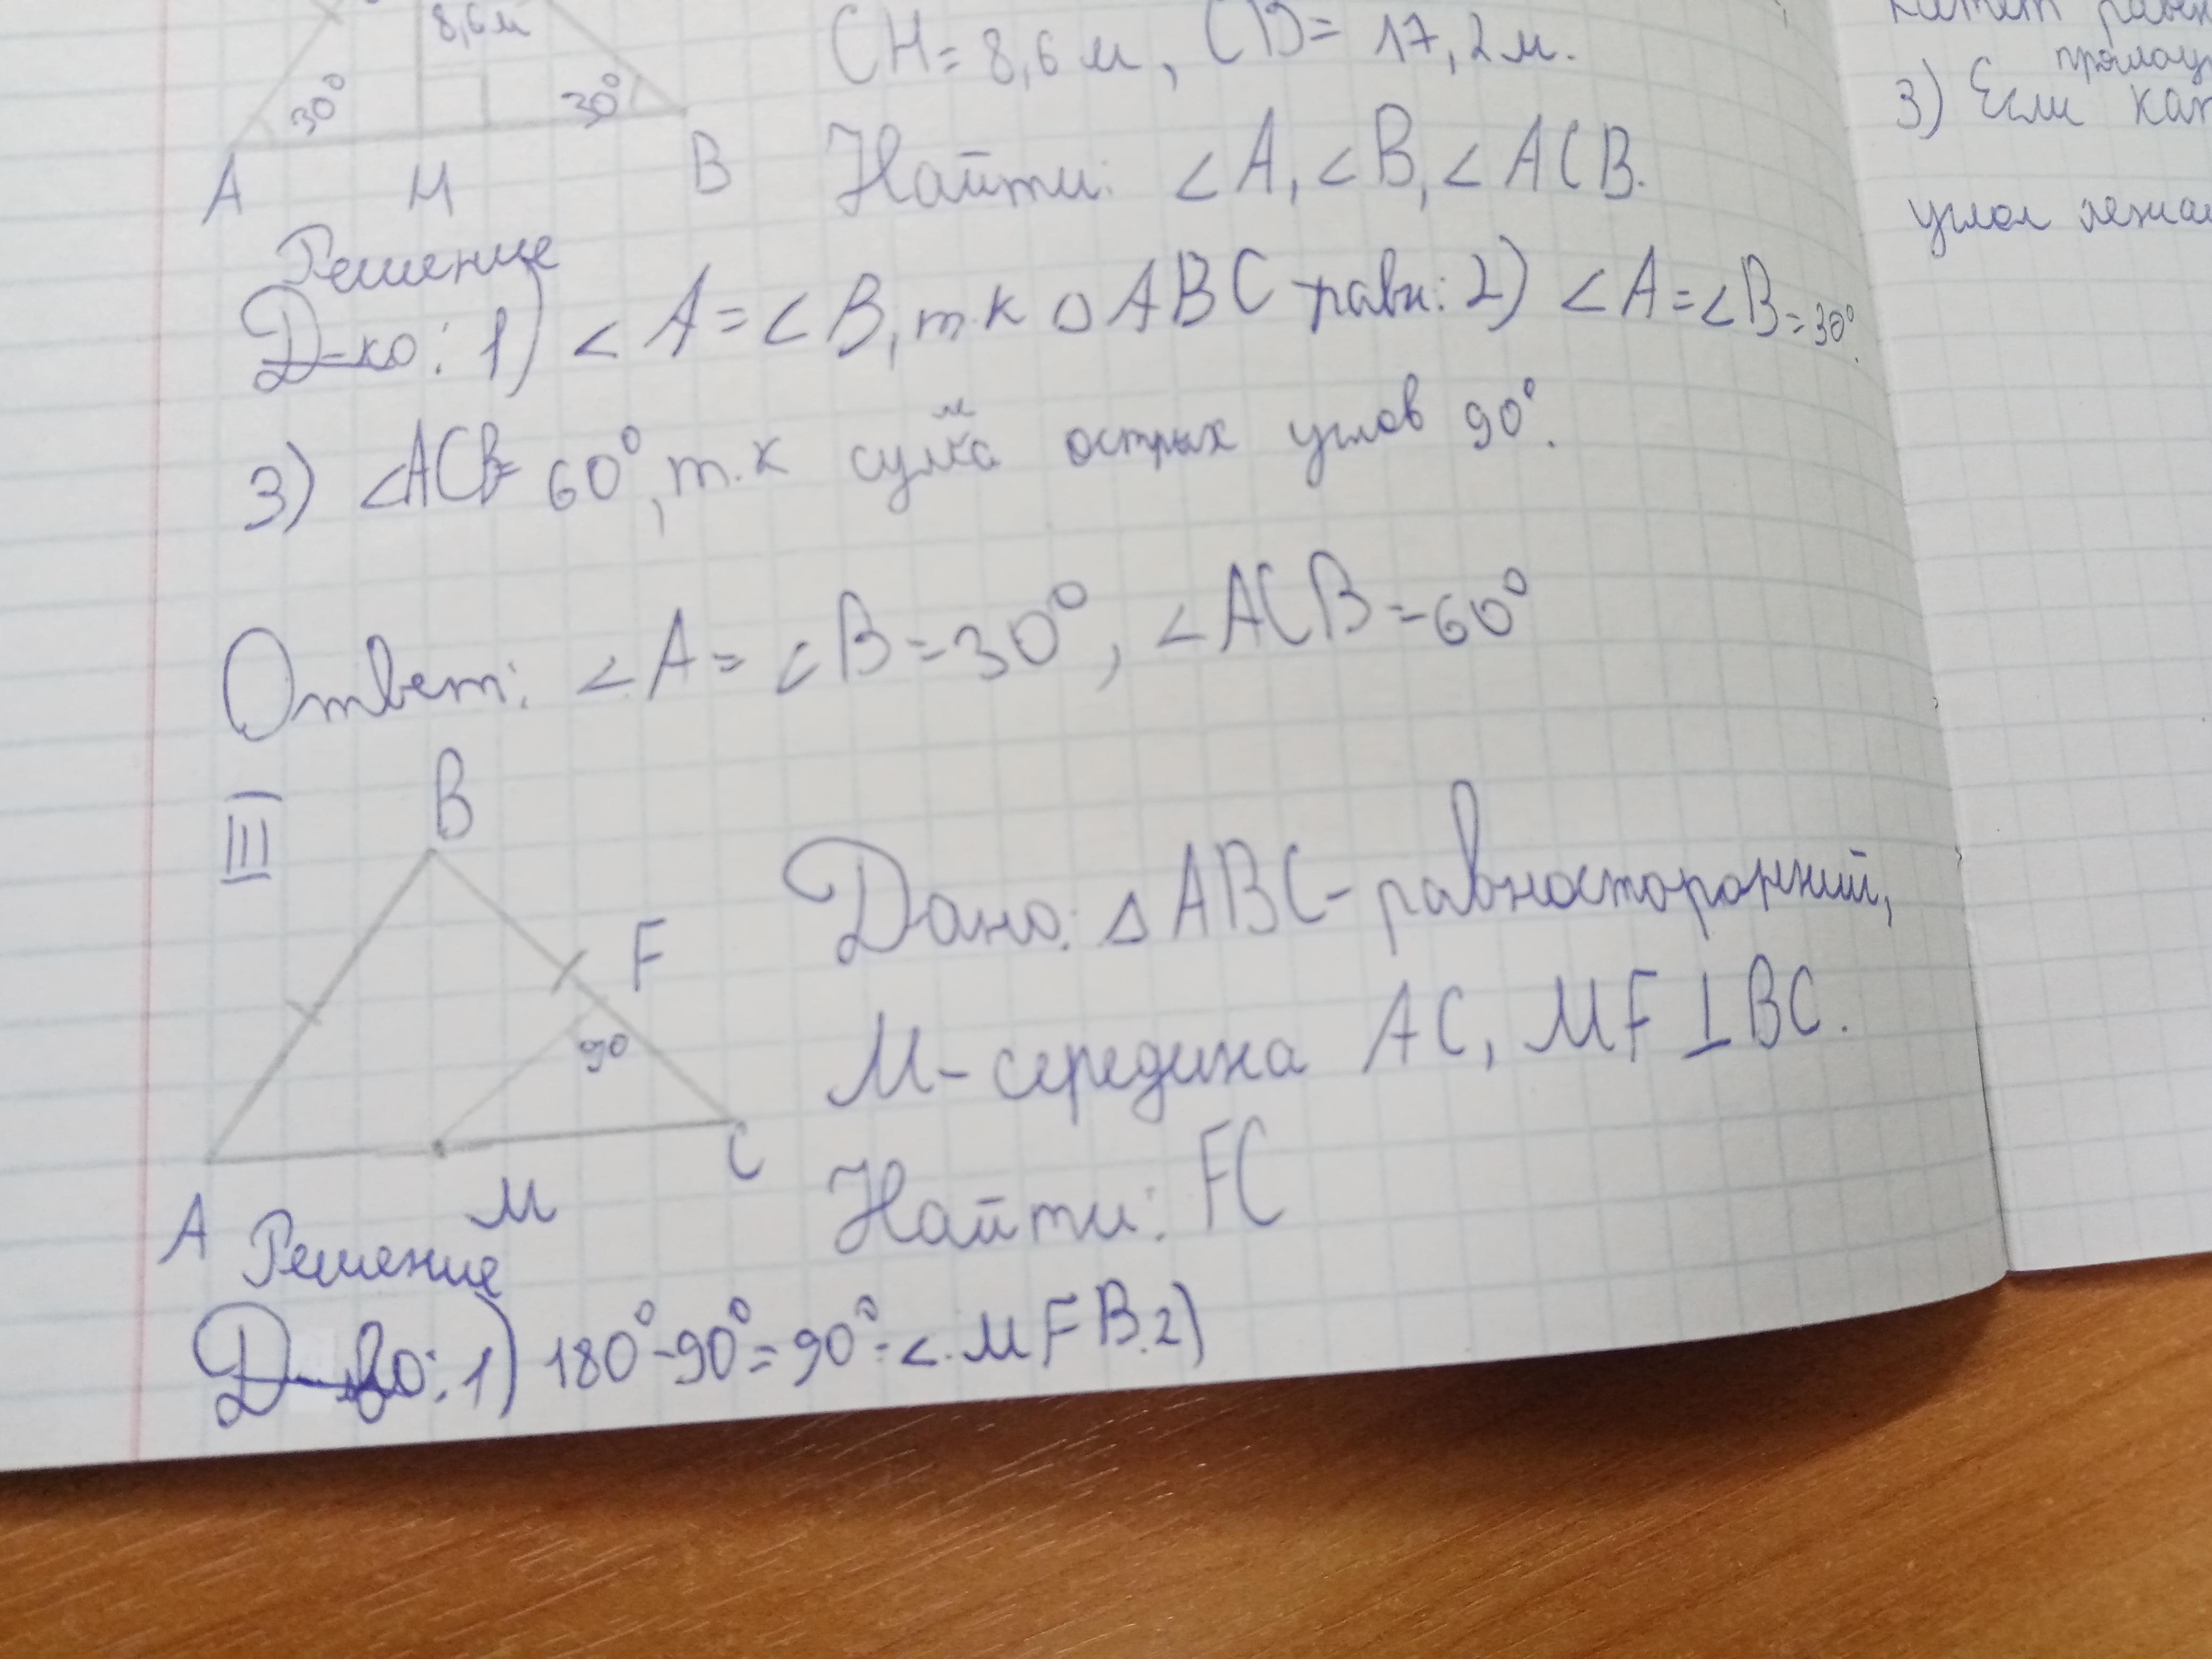 8,6м
CH = 8,6 м, CB = 17,2 м.
30° 30°
A H B
Найти: ∠A, ∠B, ∠ACB.
Решение
Д-ко: 1) ∠A = ∠B, т.к △ABC равн: 2) ∠A = ∠B = 30°.
3) ∠ACB = 60°, т.к сумма острых углов 90°.
Ответ: ∠A = ∠B = 30°, ∠ACB = 60°
III)
B
F
90
A M C
Дано: △ABC - равносторонний,
M - середина AC, MF ⊥ BC.
Найти: FC
Решение
Д-во: 1) 180° - 90° = 90° - ∠MFB. 2)
3) Если
углом